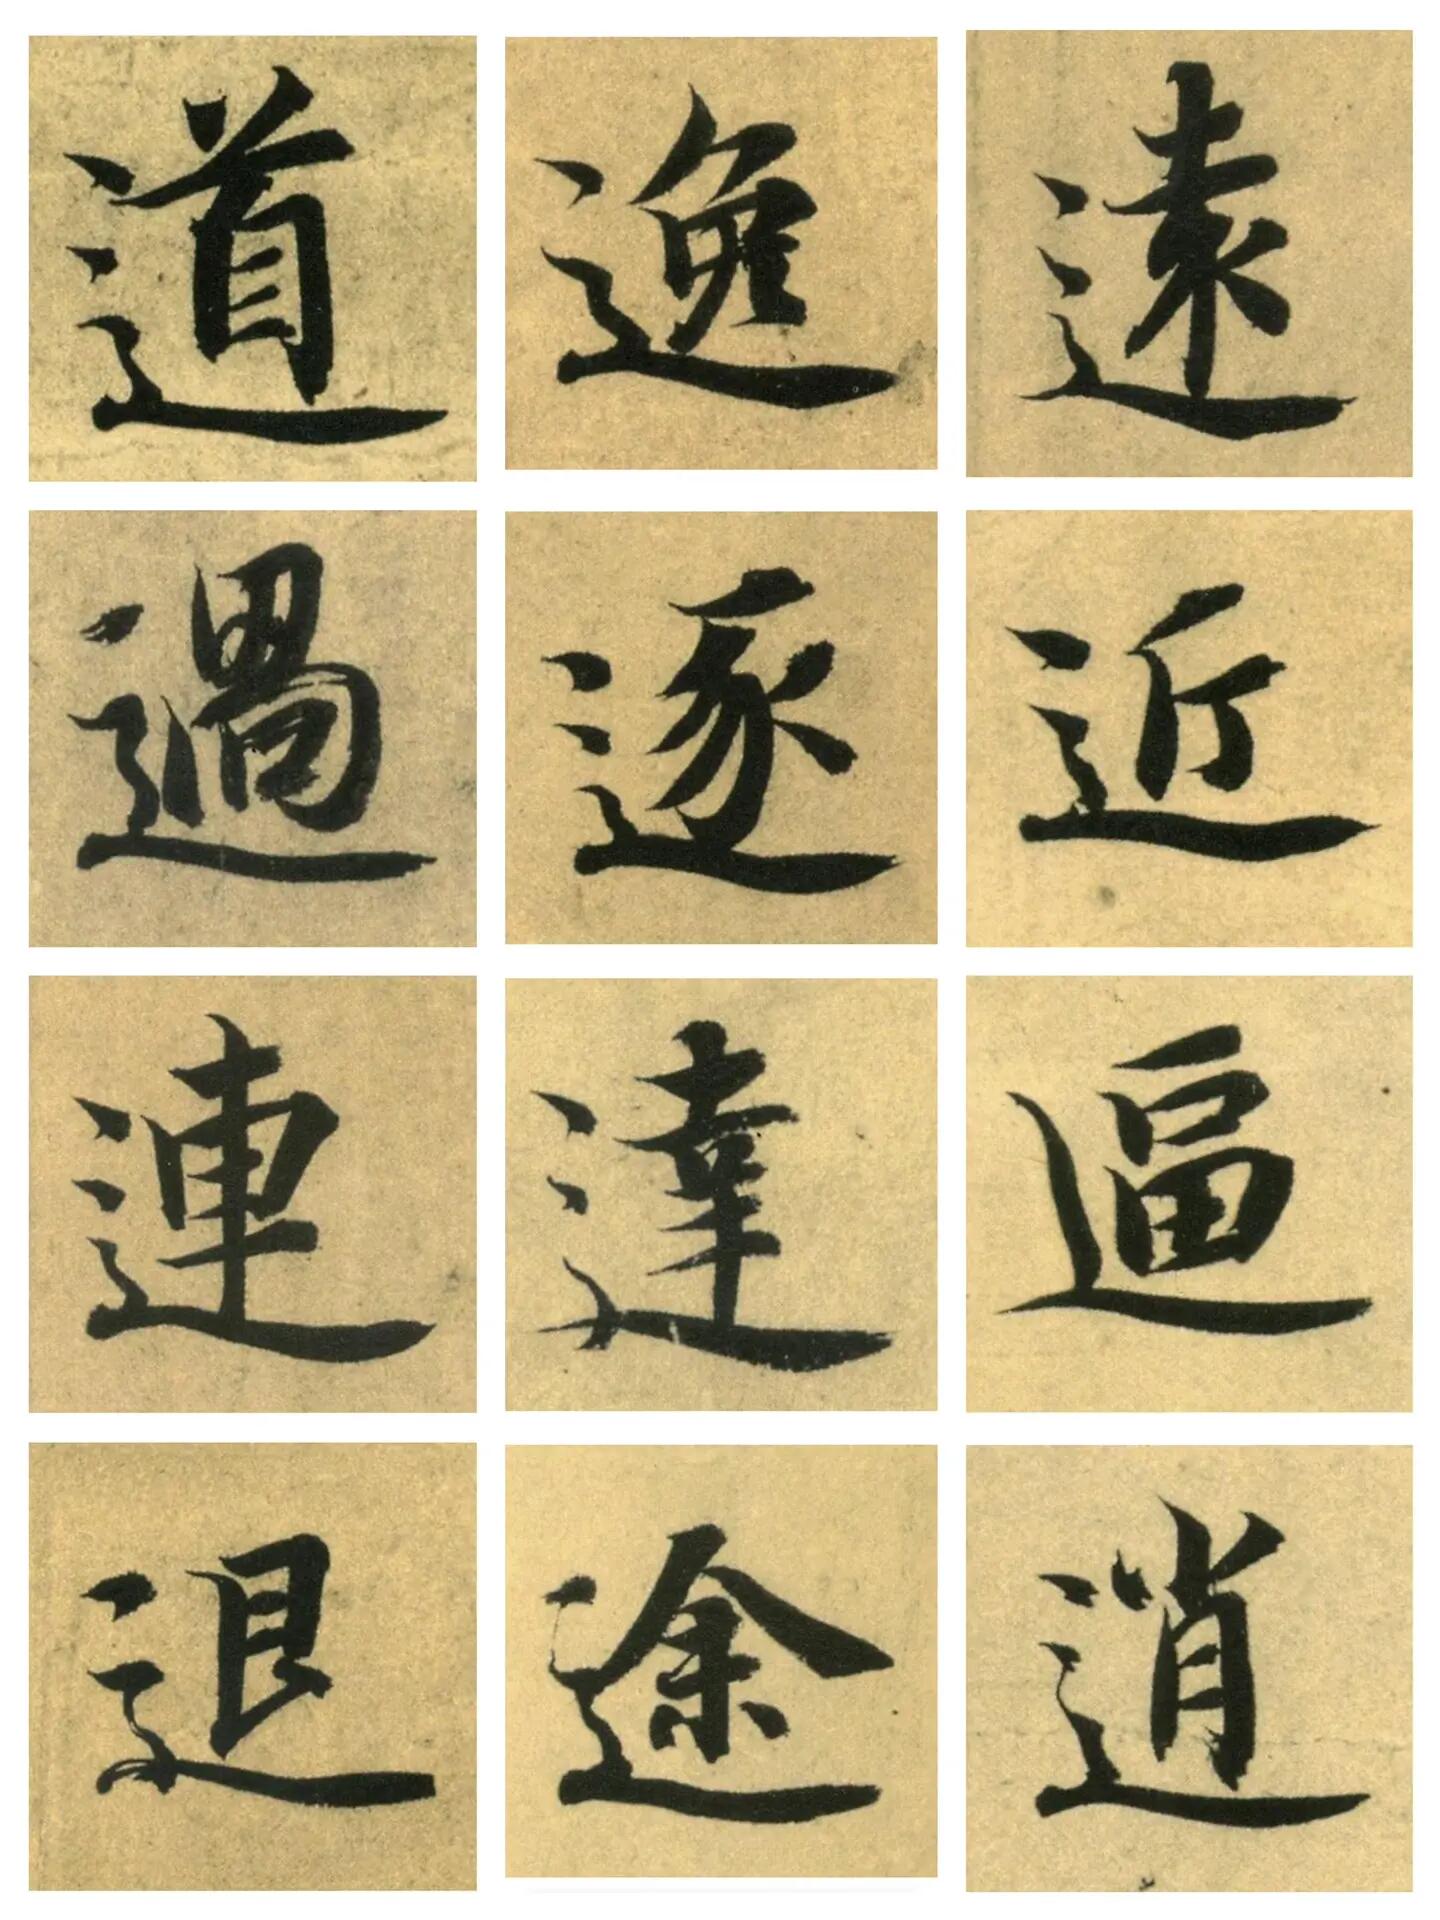 道逸遠
過逐近
連達逼
退途逍